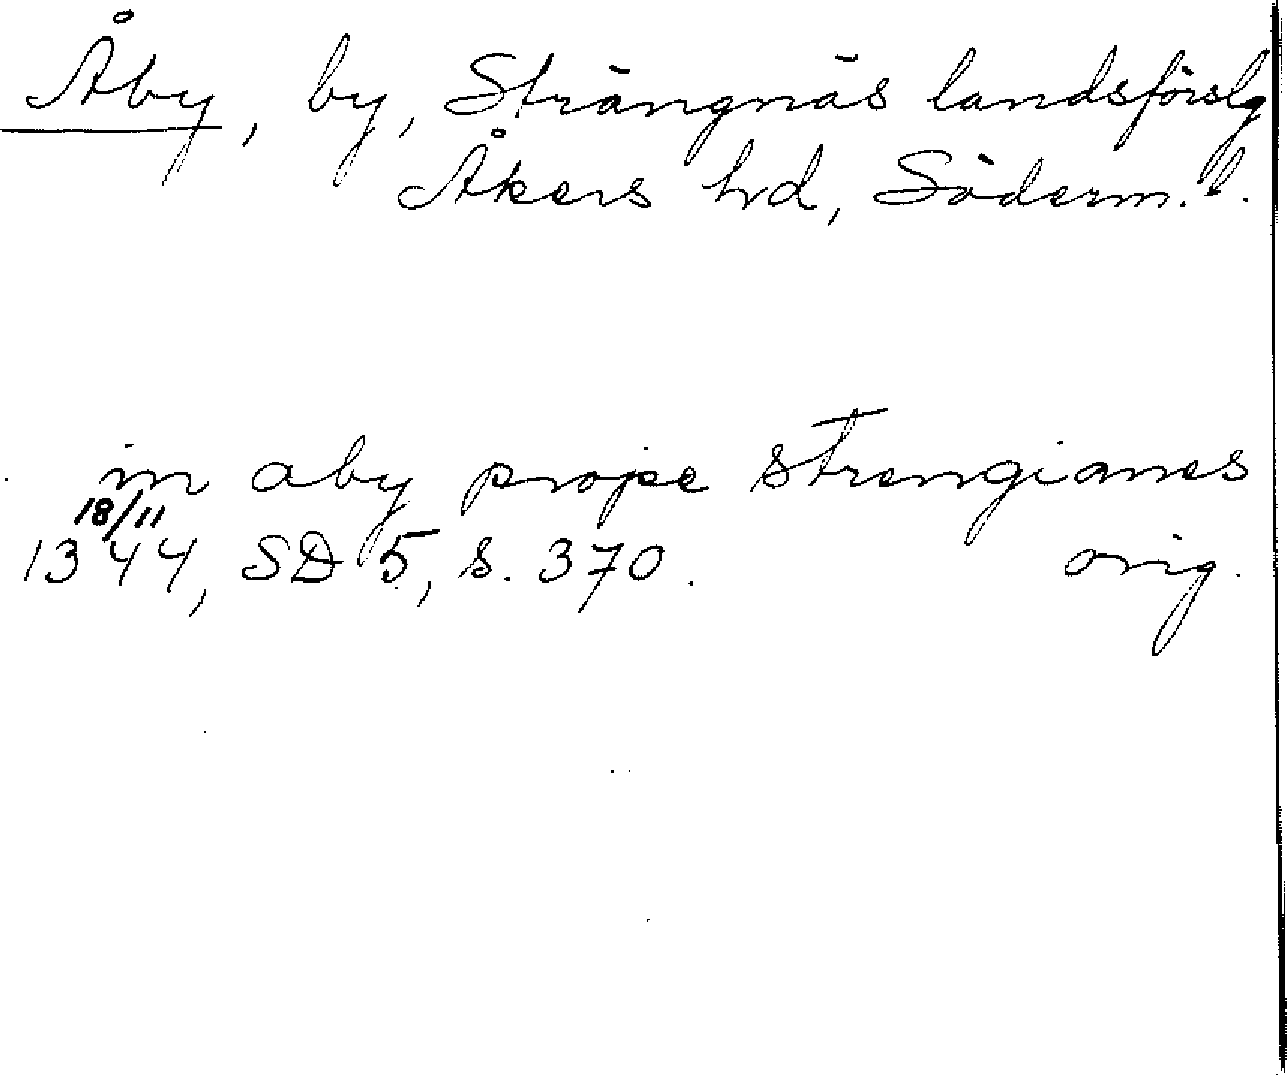 Åby, by, Strängnäs landsförslg
Åkers hd, Söderm. l.
in aby prope strengianes
18/11
1344, SD 5, s. 370. orig.